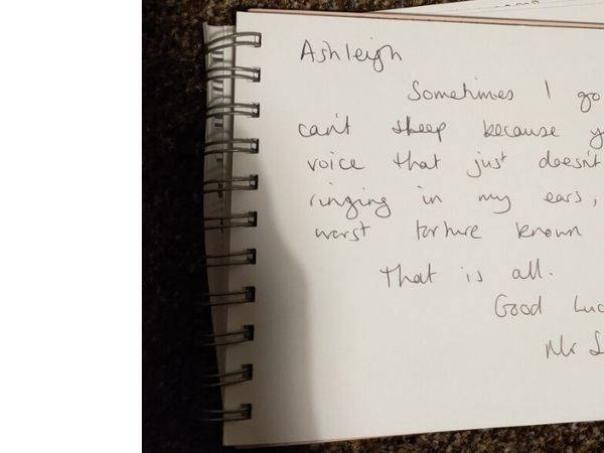 Ashleigh
Sometimes I go
can't sleep because y
voice that just doesn't
ringing in my ears,
worst torture known
That is all.
Good Luc
Mr S